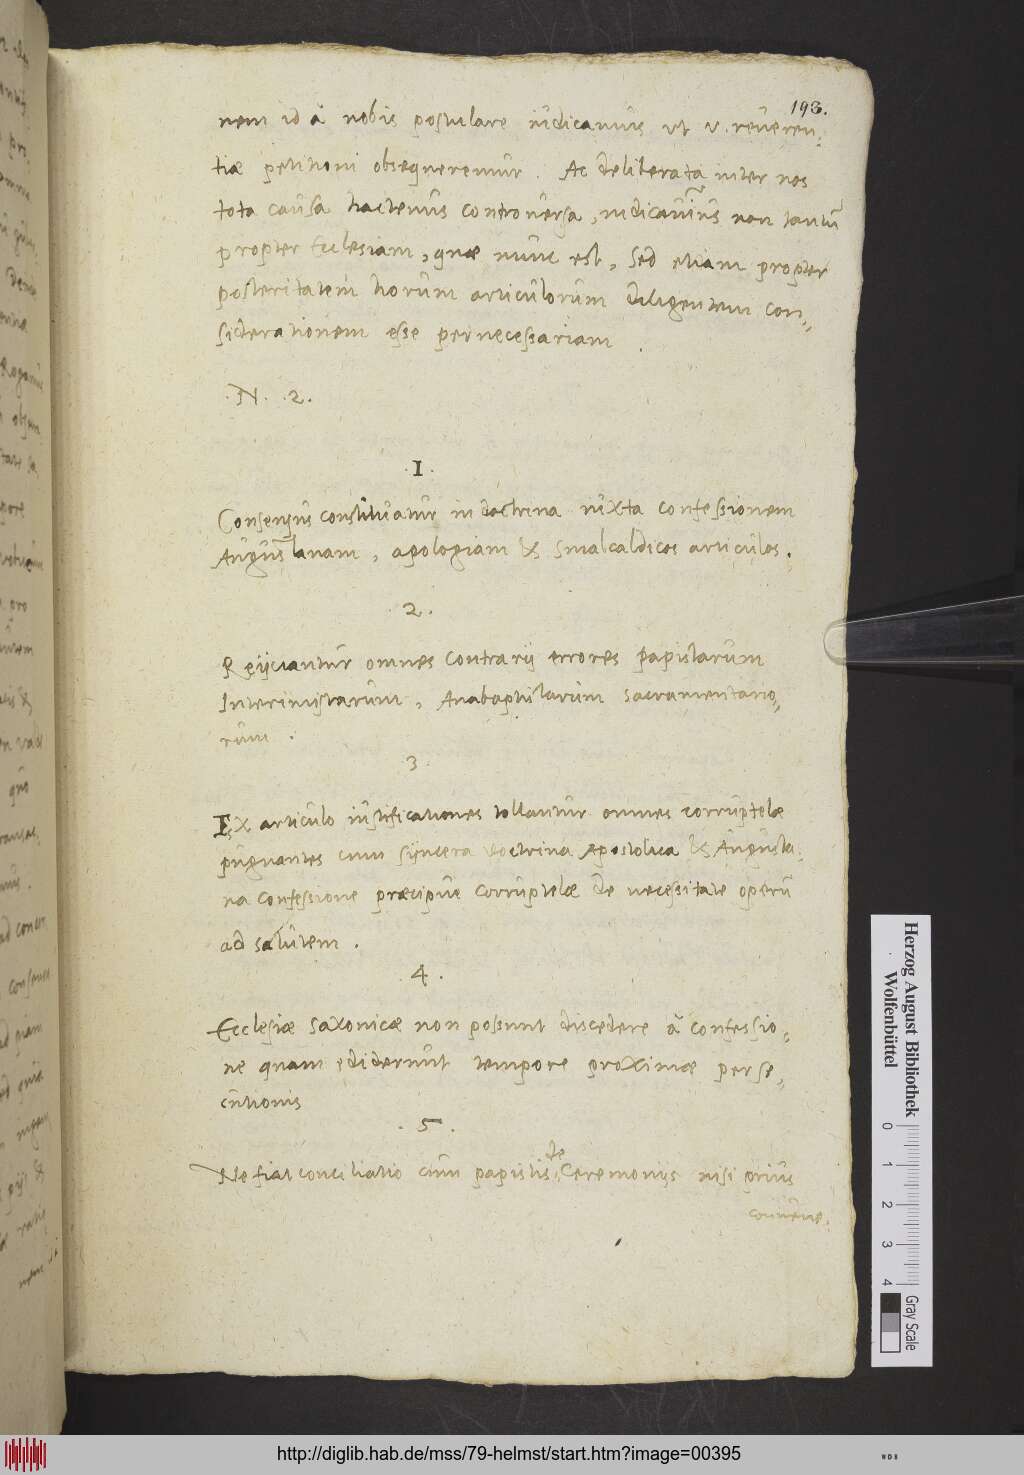 193.
nem id à nobis postulare iudicamus ut v. reueren:
tiæ petitioni obsequeremur. Ac deliberata inter nos
tota causa hactenus controuersa, iudicauimus non tantū
propter Ecclesiam, quæ nunc est, sed etiam propter
posteritatem horum articulorum diligentem con:
siderationem esse pernecessariam.
.N. .2.
.1.
Consensus constituatur in doctrina iuxta confessionem
Augustanam, apologiam & Smalcaldicos articulos.
.2.
Reijciantur omnes contrarij errores papistarum
Interimistarum, Anabaptistarum sacramentario:
rum.
3.
Ex articulo iustificationes tollantur omnes corruptelæ
pugnantes cum syncera doctrina Apostolica & Augusta:
na confessione præcipue corruptelæ de necessitate operū
ad salutem.
.4.
Ecclesiæ saxonicæ non possunt discedere à confessio:
ne quam ediderunt tempore proximæ perse:
cutionis
.5.
Ne fiat conciliatio cum papistis de Ceremonijs nisi prius
conuene:
Herzog August Bibliothek
Wolfenbüttel
0 1 2 3 4
Gray Scale
http://diglib.hab.de/mss/79-helmst/start.htm?image=00395
WDB